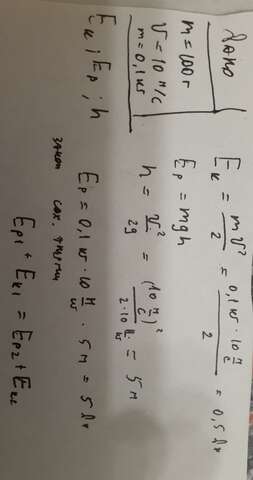 Дано
m = 100 г
v = 10 м/с
m = 0,1 кг
E к ; E р ; h
E к = mv² / 2 = 0,1 кг · 10 м/с / 2 = 0,5 Дж
E р = mgh
h = v² / 2g = (10 м/с)² / 2 · 10 Н/кг = 5 м
E р = 0,1 кг · 10 Н/кг · 5 м = 5 Дж
закон сох. энергии
E р1 + E к1 = E р2 + E к2